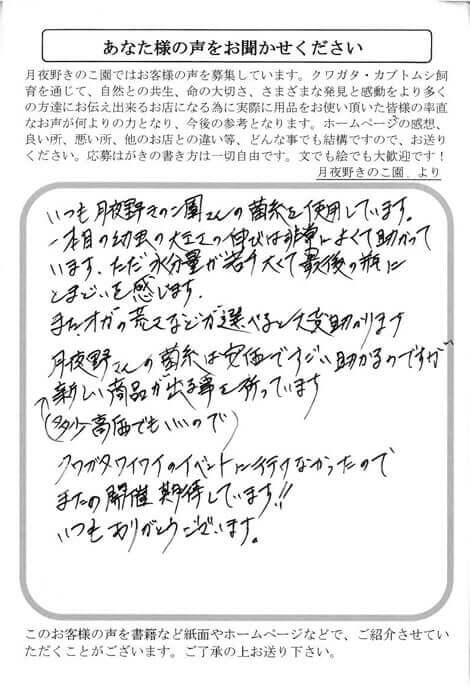 あなた様の声をお聞かせください
月夜野きのこ園ではお客様の声を募集しています。クワガタ・カブトムシ飼
育を通じて、自然との共生、命の大切さ、さまざまな発見と感動をより多く
の方達にお伝え出来るお店になる為に実際に用品をお使い頂いた皆様の率直
なお声が何よりの力となり、今後の参考となります。ホームページの感想、
良い所、悪い所、他のお店との違い等、どんな事でも結構ですので、お送り
ください。応募はがきの書き方は一切自由です。文でも絵でも大歓迎です！
月夜野きのこ園　より
いつも月夜野きのこ園さんの菌糸を使用しています。
一本目の幼虫の大きさの伸びは非常によくて助かって
います。ただ水分量が若干大くて最後の瓶に
とまどいを感じます。
また、オガの荒さなどが選べると大変助かります
月夜野さんの菌糸は安価ですごい助かるのですが
新しい商品が出る事を祈っています
(多少高価でもいいので)
クワガタワイワイのイベントに行けなかったので
またの開催期待しています!!
いつもありがとうございます。
このお客様の声を書籍など紙面やホームページなどで、ご紹介させてい
ただくことがございます。ご了承の上お送り下さい。